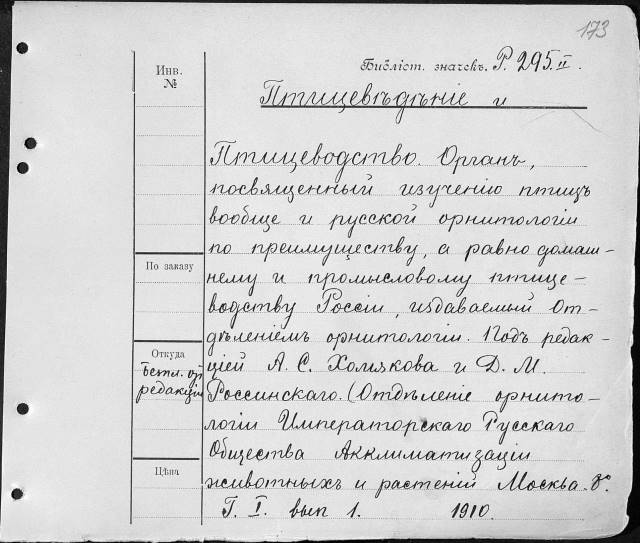 173
Библіот. значекъ. Р. 295. II.
Инв.
№
Птицевѣдѣніе и
Птицеводство. Органъ,
посвященный изученію птицъ
вообще и русской орнитологіи
по преимуществу, а равно домаш-
нему и промысловому птице-
водству Россіи, издаваемый От-
дѣленіемъ орнитологіи. Подъ редак-
ціей А. С. Хомякова и Д. М.
Россинскаго. (Отдѣленіе орнито-
логіи Императорскаго Русскаго
Общества Акклиматизаціи
животныхъ и растеній Москва. 8º.
Т. I. вып 1. 1910.
По заказу
Откуда
Безпл. отъ
редакціи
Цѣна